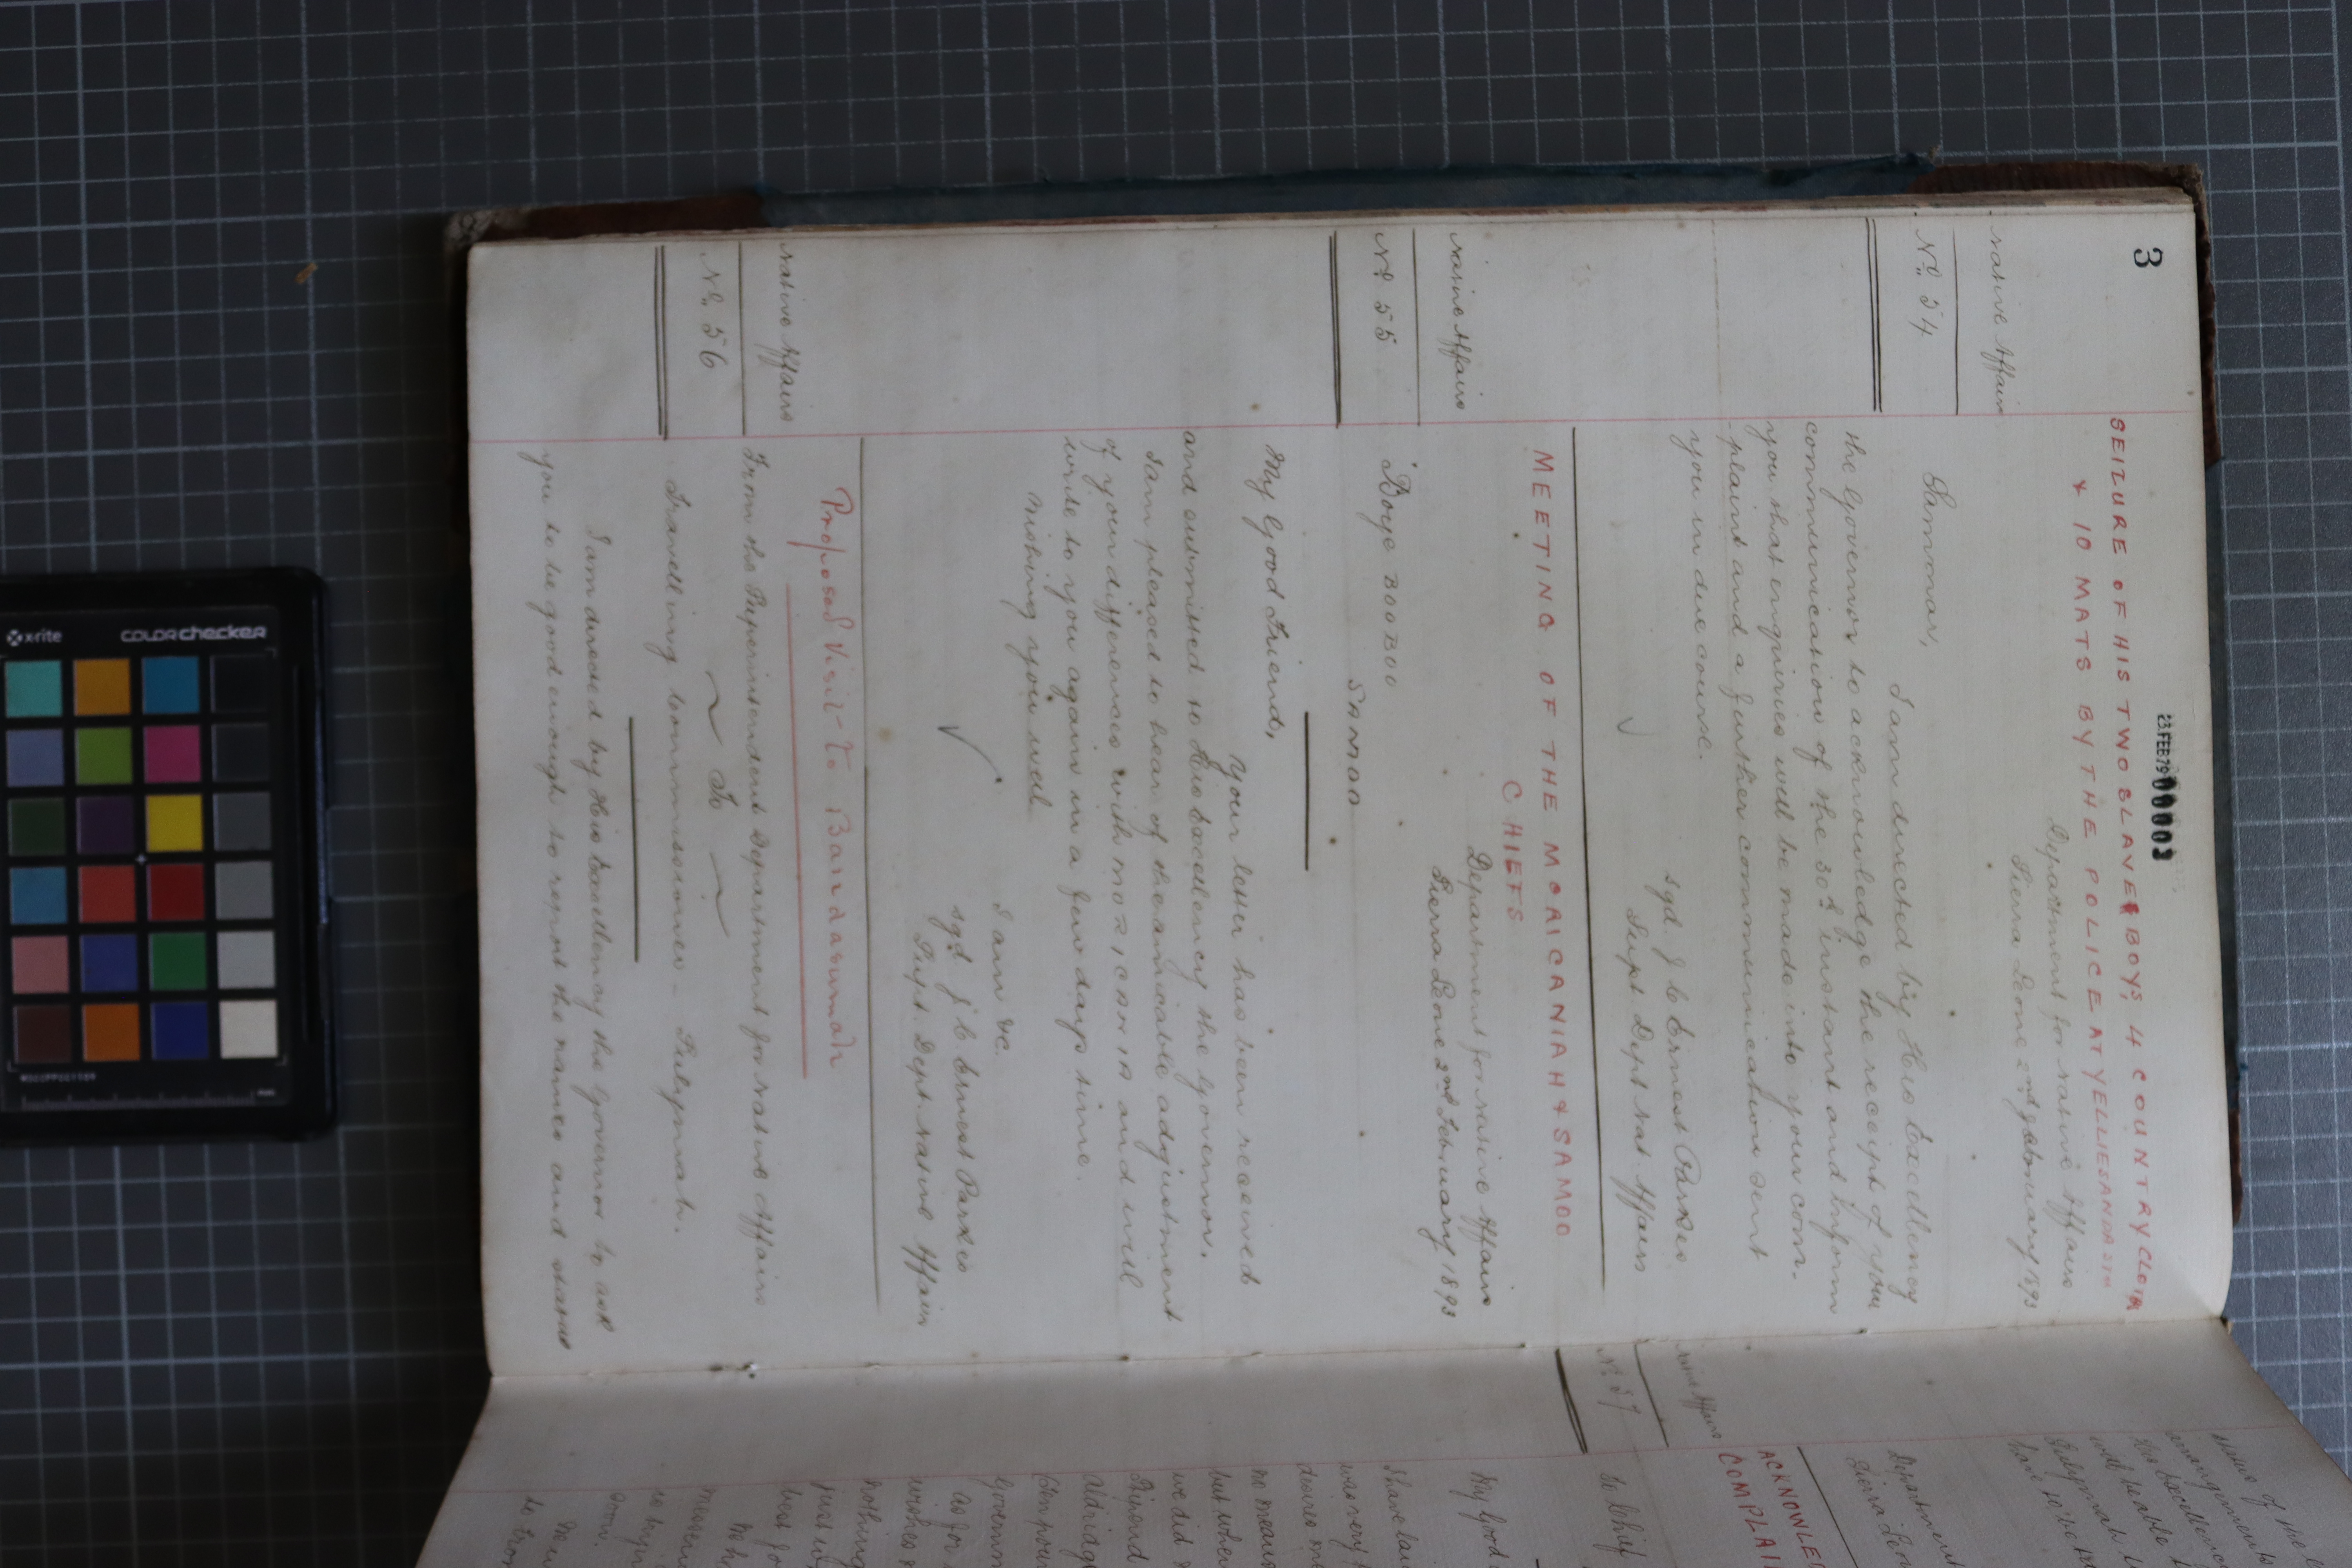 3
23.FEB79 00003
SEIZURE OF HIS TWO SLAVE BOYS, 4 COUNTRY CLOTH
& 10 MATS BY THE POLICE AT YELLIESANDA
Department for Native Affairs
Sierra Leone 2nd February 1893
Native Affairs
No 54
Sir,
I am directed by His Excellency
the Governor to acknowledge the receipt of your
communication of the 30th instant and inform
you that enquiries will be made into your com-
-plaint and a further communication sent
you in due course.
sgd. J C Ernest Parkes
Supt Dept Nat. Affairs
MEETING OF THE MORICANIAH & SAMOO
CHIEFS
Department for Native Affairs
Sierra Leone 2nd February 1893
Native Affairs
No 55
Boye BOOBOO
SAMOO
My Good Friend,
Your letter has been received
and submitted to His Excellency the Governor.
I am pleased to hear of the amicable adjustment
of your differences with MORICANIA and will
write to you again in a few days time.
Wishing you well
I am &c.
sgd J C Ernest Parkes
Supt. Dept. Native Affairs
Proposed Visit to Bandasumah
Native Affairs
No. 56
From the Superintendent Department for Native Affairs
To
Travelling Commissioner - Sulymah.
I am directed by His Excellency the Governor to ask
you to be good enough to report the names and status
Native Affairs
No 57
Department
Sierra Leone
ACKNOWLE
COMPLAI
To Chief
My Good
I have
desires
no means
but when
we did
Aldridge
Compoun
Governm
as for
wishes
nothing